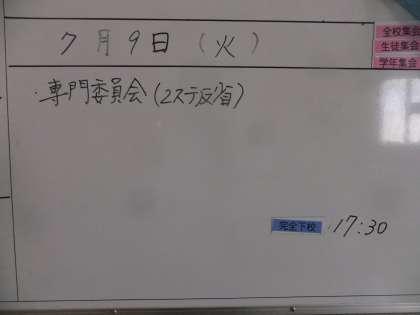 7月9日(火)
全校集会
生徒集会
学年集会
・専門委員会(2ステ反省)
完全下校 17:30